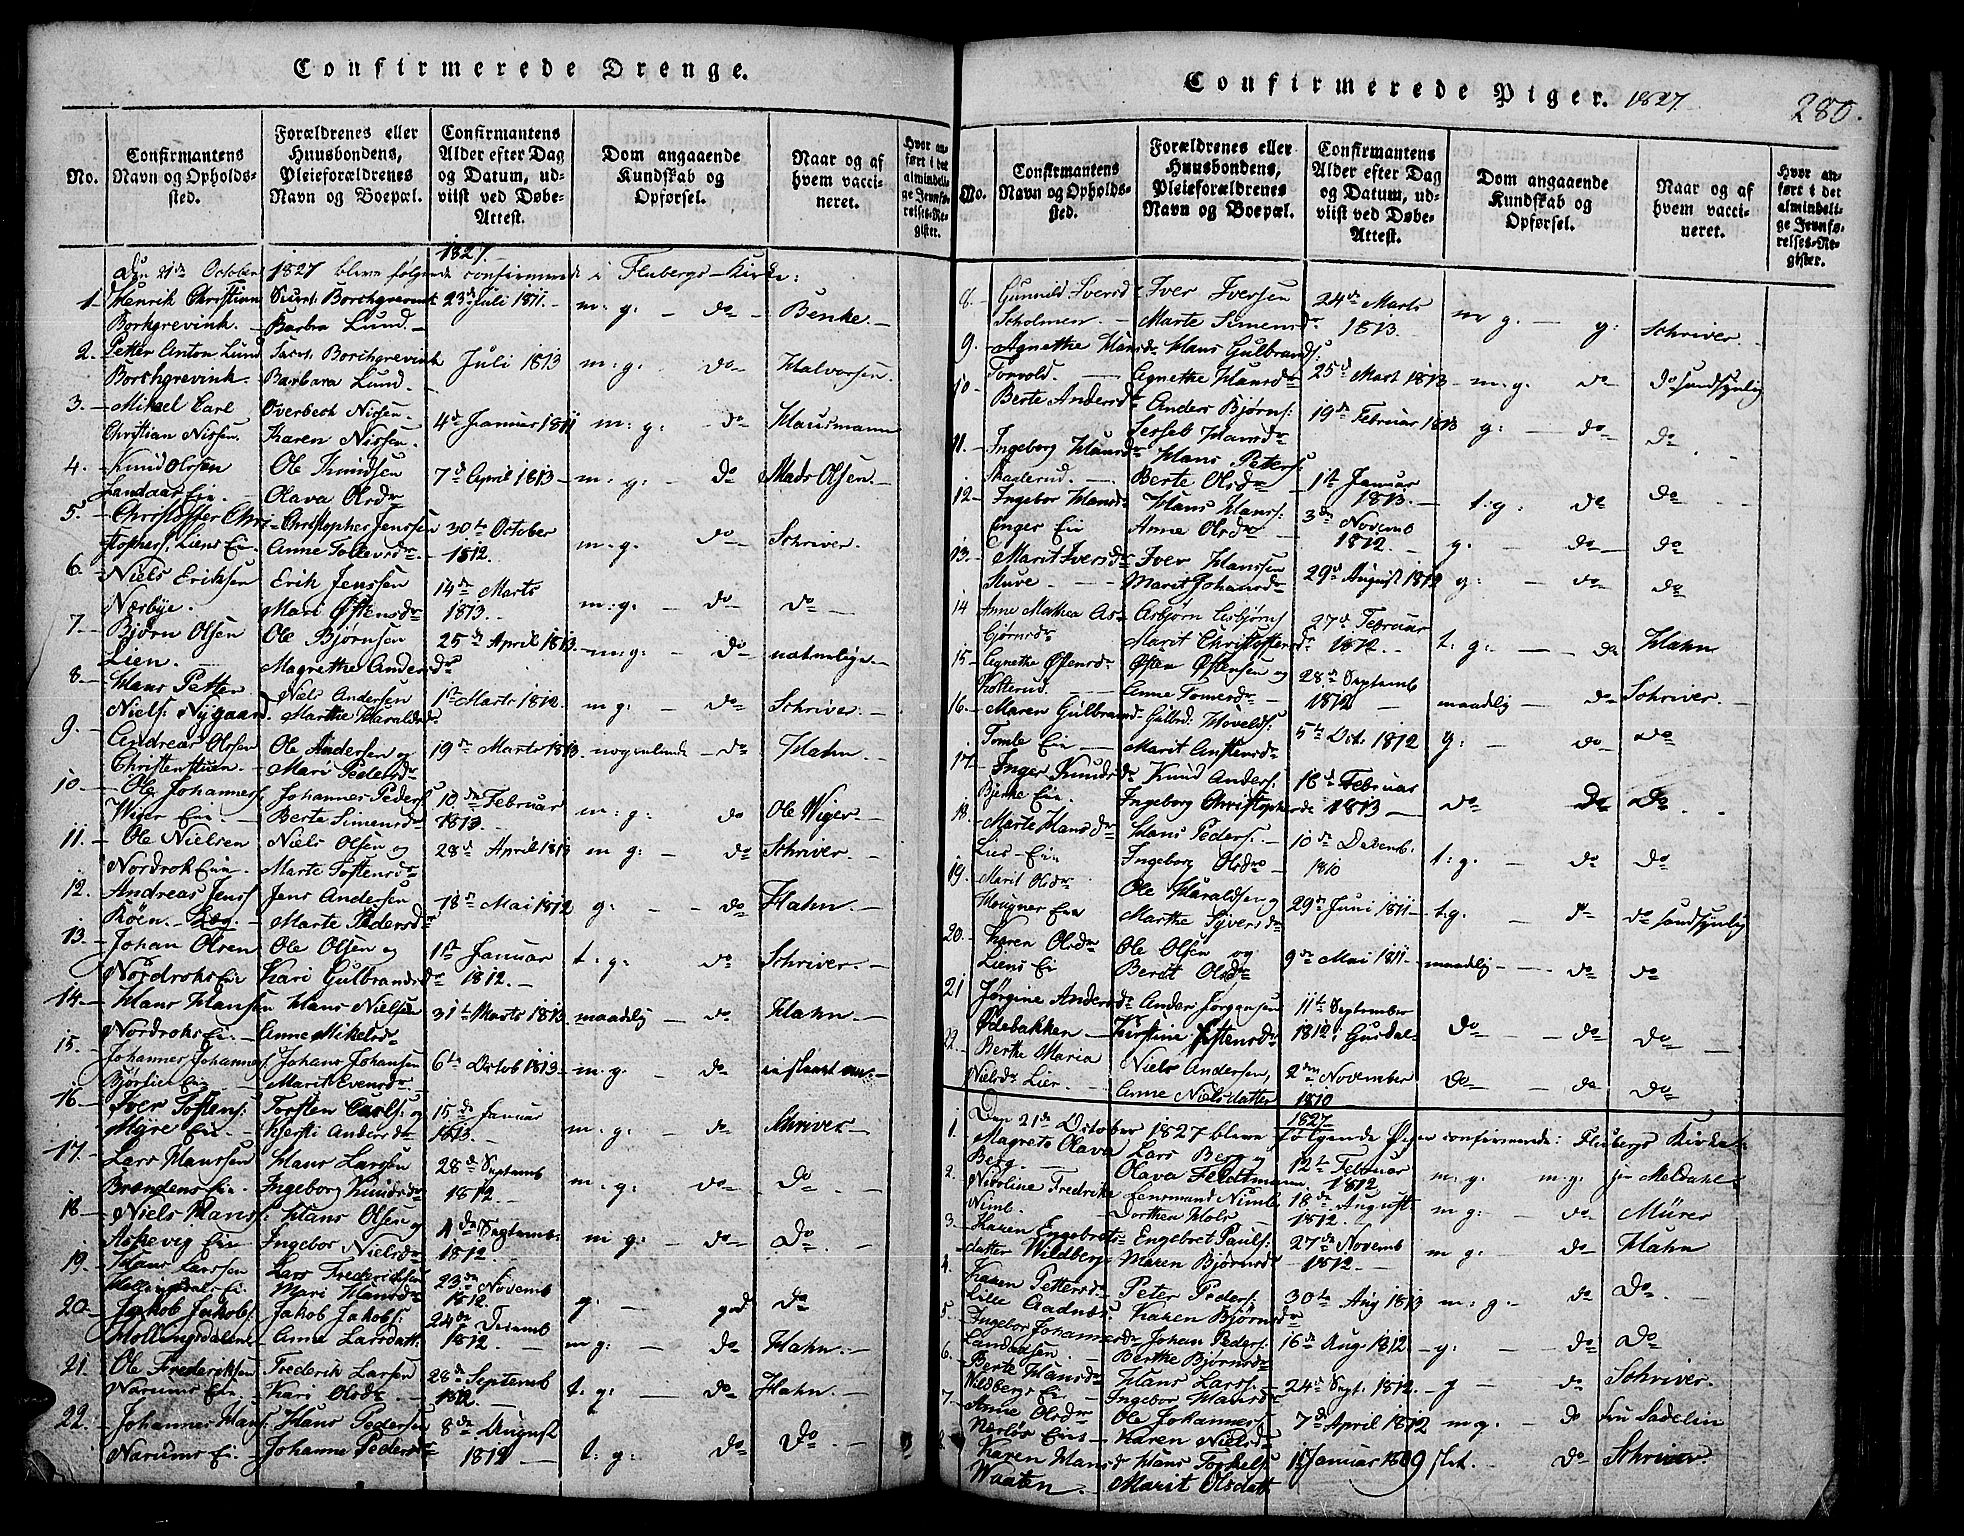 Confirmerede Drenge.
No.
Confirmantens Navn og Opholds-sted.
Forældrenes eller Huusbondens, Pleieforældrenes Navn og Boepæl.
Confirmantens Alder efter Dag og Datum, ud-viist ved Døbe-Attest.
Dom angaaende Kundskab og Opførsel.
Naar og af hvem vacci-neret.
Hvor an-ført i det almindeli-ge Jevnfø-relses-Re-gister.
1827.
Den 21de October 1827 bleve følgende confirmerede i Flubergs-Kirke:
1. Henrik Christian Borchgrevink. Barbra Lund. 23de Juli 1811. m: g. do Benke.
2. Petter Anton Lund Borchgrevink. Borchgrevink Barbara Lund. Juli 1813 m: g. do Halvorsen.
3. Mikael Carl Christian Nissen. Overbech Nissen. Karen Nissen. 4de Januar 1811 m: g: do Hausmann
4. Knud Olssen Landaas Eie. Ole Knudsen Olava Olsdr 7de April 1813 m: g: do Mads Olsen.
5. Christoffer Christophers: Liens Eie. Christopher Jenssen Anne Tollevsdr 30te October 1812. m: g. do Schriver.
6. Niels Eriksen Nærbye. Erik Jenssen Mari Østensdr 14de Marts 1813. m: g: do do
7. Bjørn Olsen Lien. Ole Bjørnsen Magrethe Andersdr 25de April 1813. m: g: do naturlige.
8. Hans Petter Niels: Nygaard. Niels Andersen Marthe Haraldsdr 1st Marts 1812. m: g: do Schriver.
9. Andreas Olsen Christenstuen. Ole Andersen og Mari Pedersdr 19de Marts 1813. nogenlunde do Hahn.
10. Ole Johannes: Wiger Eie. Johannes Peders: Berte Simensdr 10de Februar 1813. m: g: do Ole Wiger.
11. Ole Nielsen Nordrok Eie. Niels Olsen og Marte Tostensdr 28de April 1813 m g: do Schriver.
12. Andreas Jens: Røen. Jens Andersen Marte Pedersdr 18de Mai 1812 g: do Hahn.
13. Johan Olsen Nordroks Eie. Ole Olsen og Kari Gulbrandsdr 1st Januar 1812. t: g: do Schriver.
14. Hans Hansen Nordroks Eie. Hans Nielsen Anne Mikelsdr 31te Marts 1813. maadelig do Hahn.
15. Johannes Johannes: Bjørlien Eie Johans Johansen Marit Evensdr 6te Octob 1813. m: g: do
16. Iver Tostens: Myre Eie. Torsten Carls: og Kjersti Andersdr 15de Januar 1813. m: g: do Schriver.
17. Lars Hanssen Brandens Eie. Hans Larsen Ingeborg Knudsdr 28de Septemb 1812. m: g: do Do
18. Niels Hans: Askevig Eie Hans Olsen og Ingebor Nielsdr 1de Septemb. 1812. m g: do Do
19. Hans Larssen Eie. Lars Frederichsen Mari Hansdr 23de Novemb 1812. g: god do
20. Jakob Jakobs: Hollingsdalens Jakob Jakobs: Anne Larsdatt 24de Decemb 1812. m g: do Hahn.
21. Ole Frederiksen Narums Eie. Frederik Larsen Kari Olsdr 28de Septemb 1812. t: g: do Hahn.
22. Johannes Hans: Narums Ei. Hans Pedersen Johanne Pedersdr 8de August 1812 t: g: do Do
Confirmerede Piger. 1827. 280.
No.
Confirmantens Navn og Opholds-sted.
Forældrenes eller Huusbondens, Pleieforældrenes Navn og Boepæl.
Confirmantens Alder efter Dag og Datum, ud-viist ved Døbe-Attest.
Dom angaaende Kundskab og Opførsel.
Naar og af hvem vacci-neret.
Hvor an-ført i det almindeli-ge Jevnfø-relses-Re-gister.
8. Gunnild Iversd Scholmen. Iver Iversen Marte Simensdr 24de Marts 1813. m g. g: Schriver.
9. Agnethe Hansdr Torvold. Hans Gulbrands: Agnethe Hansdr 25de Mart 1813 m: g: do do sandsynlig
10. Berte Andersdr Anders Bjørns: Sessel Hansdr 19de Februar 1813 g: do do
11. Ingeborg Hansdr Skaderud. Hans Petters: Berte Olsdr 1st Januar 1813. t: g: do do
12. Ingebor Hansdr Enger Eie Hans Hans: Anne Olsdr 3de Novemb 1812. g: do do
13. Marit Iversdr Iver Hanssen Marit Johansdr 29de August 1812 g: do do
14 Anne Mathea Asbjørnsdr Asbjørn Asbjørns Marit Christoffersdr 27de Februar 1812. t: g: do Hahn
15. Agnethe Østensdr Kolterud. Østen Østensen og Anne Tomesdr 28de Septemb 1812 maadlig do Schriver.
16. Maren Gulbrandsd Tomle Eie Gulbd. Hovelds: Marit Anstensdr 5te Oct. 1812 g: do do
17. Inger Knudsdr Bjerke Eie. Knud Anders: Ingeborg Christophersdr 16de Februar 1813 do Do Do
18. Marte Hansdr Lies-Eie Hans Peders: Ingeborg Olsdr 10de Decemb: 1810 t: g: do do
19. Marit Olsdr Hougner Eie Ole Haraldsen og Marthe Syversdr 29de Juni 1811 t. g: do sandsynlig
20. Karen Olsdr Liens Ei Ole Olsen og Berit Olsdr 9de Mai 1811. maadlig do do
21 Jørgine Andersdr Ødebakken Anders Jørgensen Kirstine 11te September 1812; Gusdal Do do do
22. Berthe Maria Nielsdr Lier. Niels Andersen, Anne Nielsdatter 2den November 1810 Do do Do
1827
Den 21de October 1827 bleve følgende Piger confirmerede: Flubergs Kirke:
1. Magrete Olava Berg. Lars Berg og Olava Feldtmann 12te Februar 1812. m: g: m: g: Meldahl
2. Nicoline Fredrike Nimb. Lensmand Nimb Dorthea Hols 18de August 1812. m g: do Mürer
3. Karen Engebrets-datter Wildberg. Engebret Pauls: Maren Bjørnsdr 27de Novemb 1812. m g: do Hahn
4. Karen Pettersdr Lille Aadnes. Peter Peders: Karen Bjørnsdr 30te Aug 1813 m: g: do Do
5. Ingebor Johannesdr Landaasen. Johan Peders: Berthe Bjørnsdr 16de Aug. 1812 g: do Do
6. Berte Hansdr Wildbergs Ei Hans Lars: Ingebor Hansdr 24de Sept: 1812. g do Schriver.
7. Anne Olsdr Ole Johannes: Karen Nielsdr 7de April 1812 m g: do Fru Sadelin
8. Karen Hansd Waaten. Hans Torkels: Marit Olsdatt. Januar 1809 slet. do Schriver.